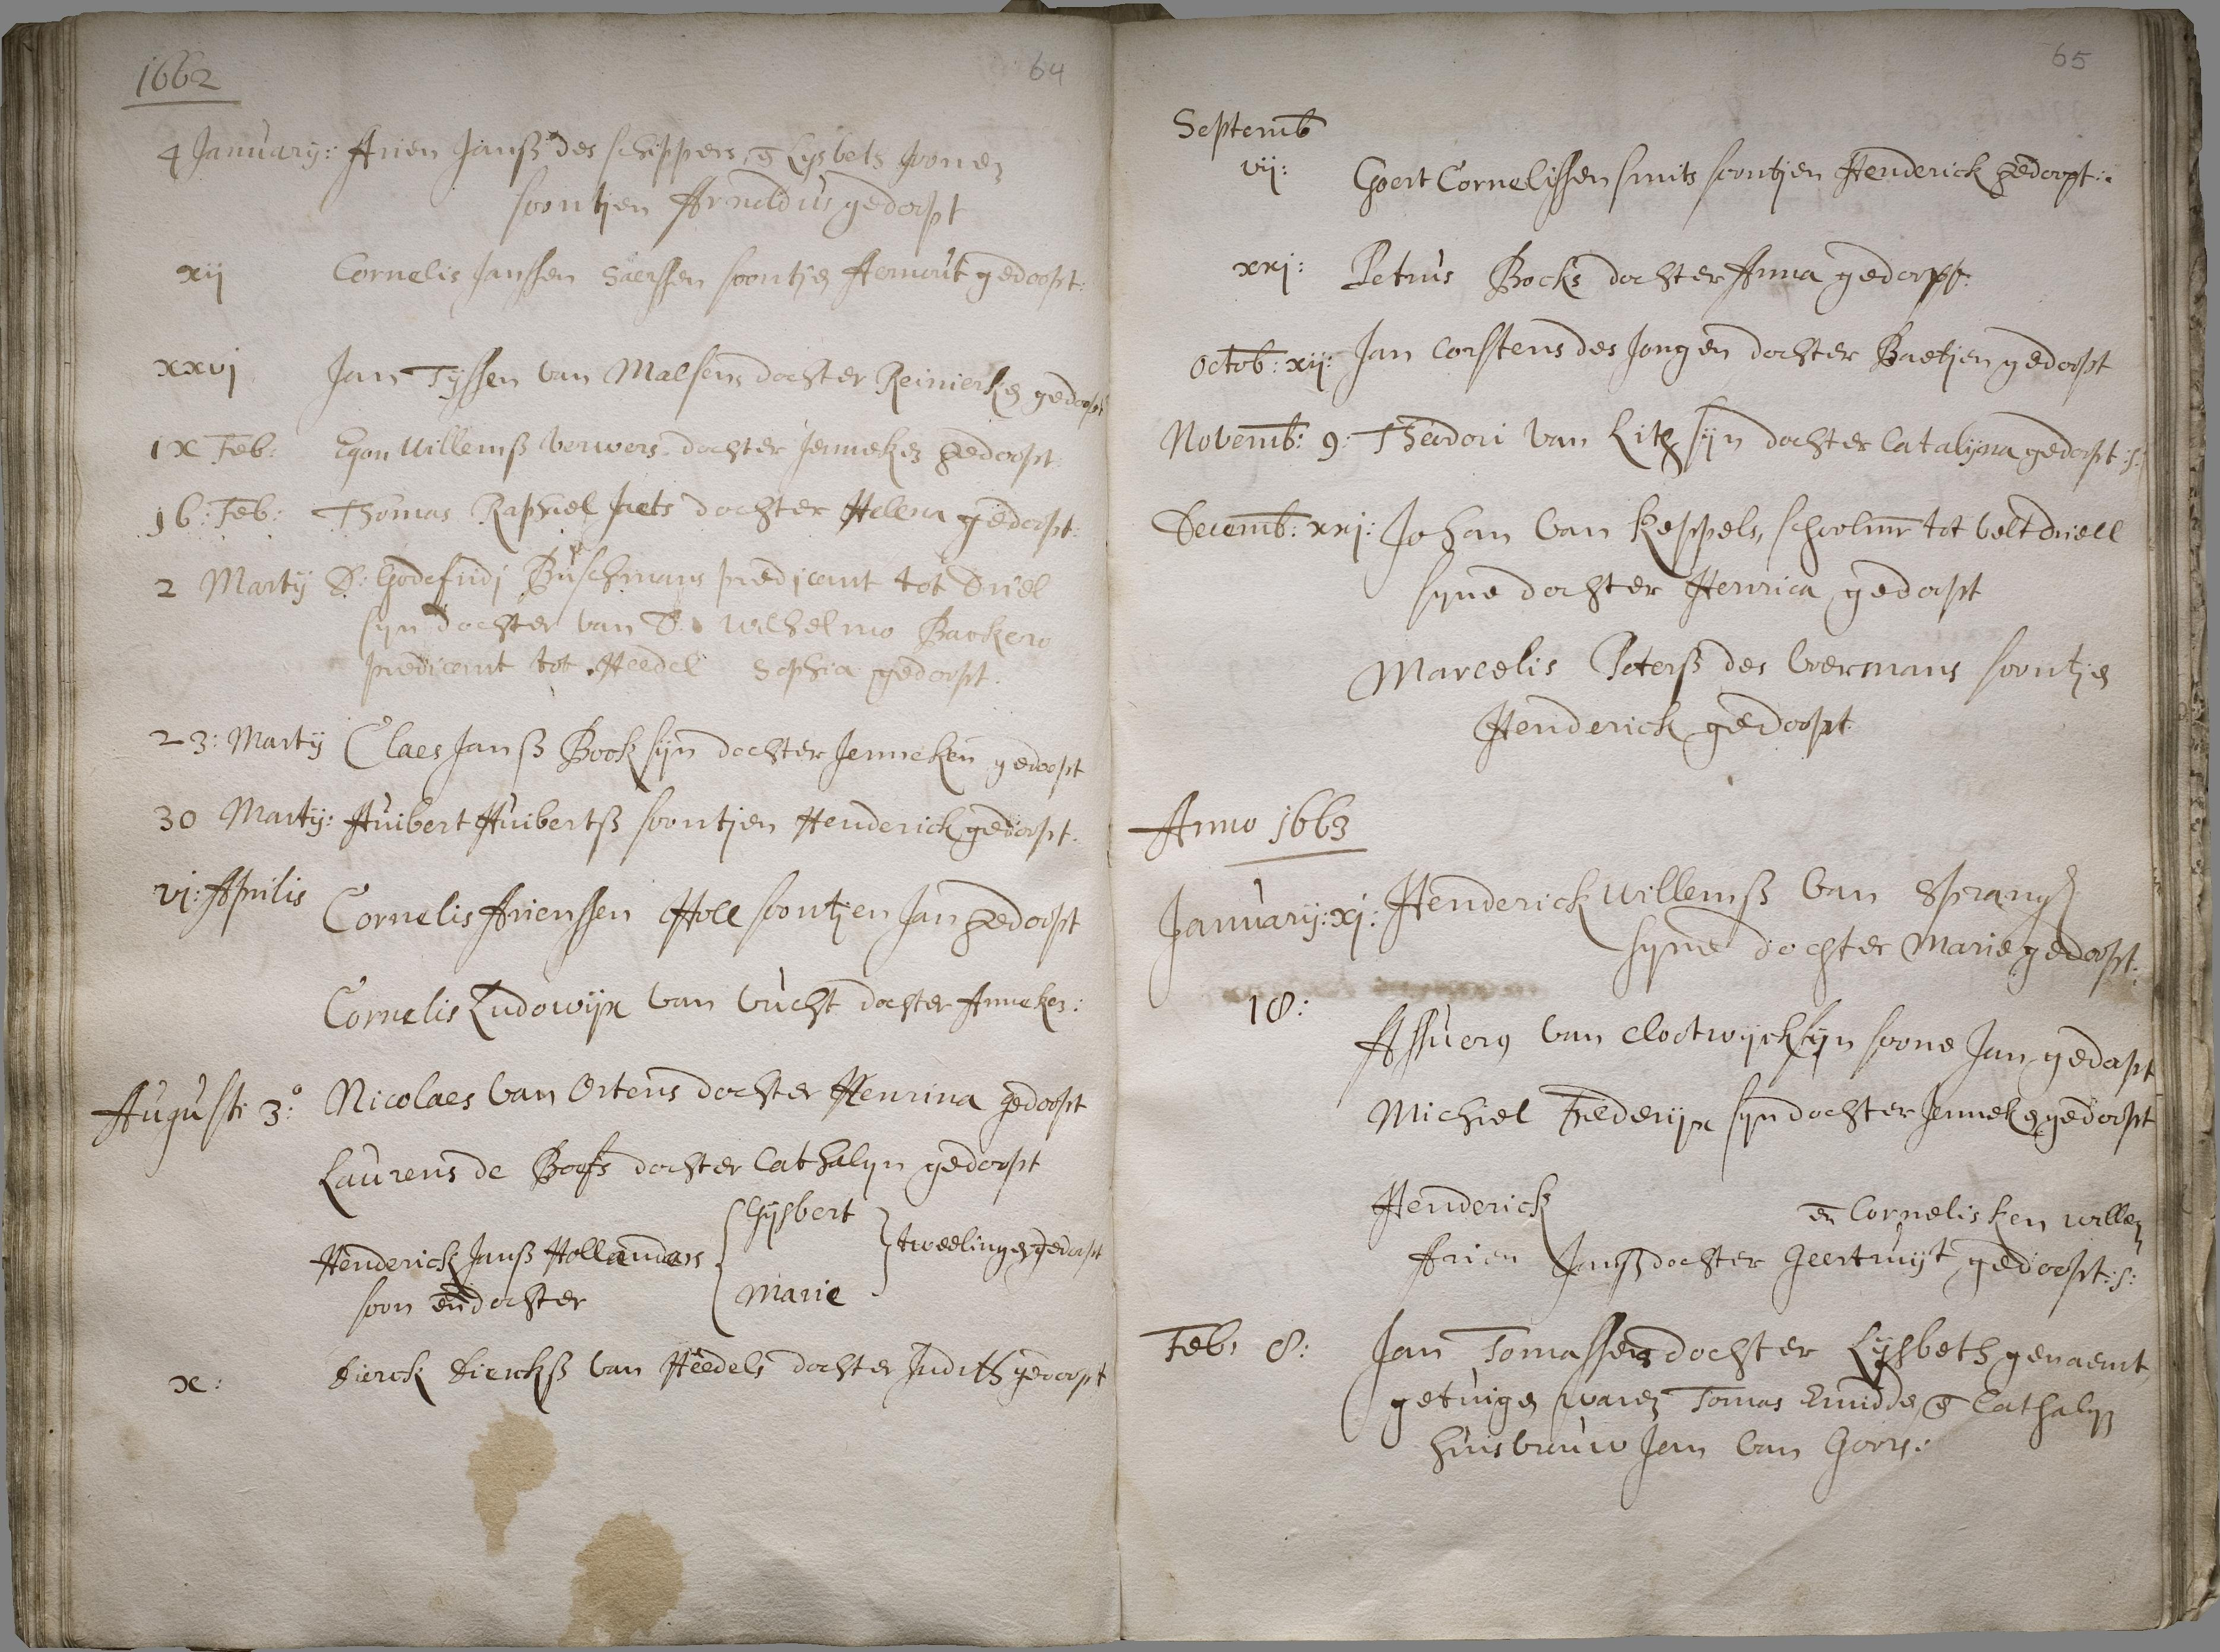 1662
64
4 January: Arien Janß des schippers, e Lijsbeth Joonen
soontjen Arnoldus gedoopt
xij Cornelis Janssen Saerssen soontjen Aernout gedoopt:
xxvj Jan Tijssen van Malsens dochter Reinierken gedoopt
IX Feb: Egon Willemß verwers dochter Jenneken gedoopt
16: Feb: Thomas Raphiel dochter Helena gedoopt:
2 Martij D: Godefridj Buschmans predicant tot Driel
sijn dochter van D: Wilhelmo Backero
predicant tot Heedel Sophia gedoopt.
23: Martij Claes Janß Bock sijn dochter Jenneken gedoopt
30 Martij: Huibert Huibertß soontjen Henderick gedoopt.
vj: Aprilis Cornelis Arienssen Holl soontjen Jan gedoopt
Cornelis Ludowijx van Vucht dochter Anneken:
Augusti 3:° Nicolaes van Ortens dochter Henrina gedoopt
Laurens de Boefs dochter Cathalijn gedoopt
Gijsbert
Henderick Janß Hollanders tweelingen gedoopt
soon en dochter Marie
x: Dierck Dierckß van Heedels dochter Judith gedoopt
65
Septemb
vij: Goert Cornelissen smits soontjen Henderick gedoopt:
xxj: Petrus Bocks dochter Anna gedoopt:
Octob: xij: Jan Corstens des Jongen dochter Baetjen gedoopt
Novemb: 9: Theodori van Lith sijn dochter Catalijna gedoopt:s:
Decemb: xxj: Johan van Keppels, schoolmr tot Veltdriell
syne dochter Henrica gedoopt
Marcelis Peterß des Voermans soontjen
Henderick gedoopt
Anno 1663
January: xj: Henderick Willemß van Sprangh
syne dochter Marie gedoopt:
18: Assuerus van Clootwijck sijn soone Jan gedoopt
Michiel Frederijx sijn dochter Jenneken gedoopt
Henderick en Cornelisken Willen
Arien Janß dochter Geertruijt gedoopt:s:
Feb: 8: Jan Tomassens dochter Lijsbeth genaemt,
getuigen waren Tomas e Cathalijn
huisvrouw Jan van Goors: